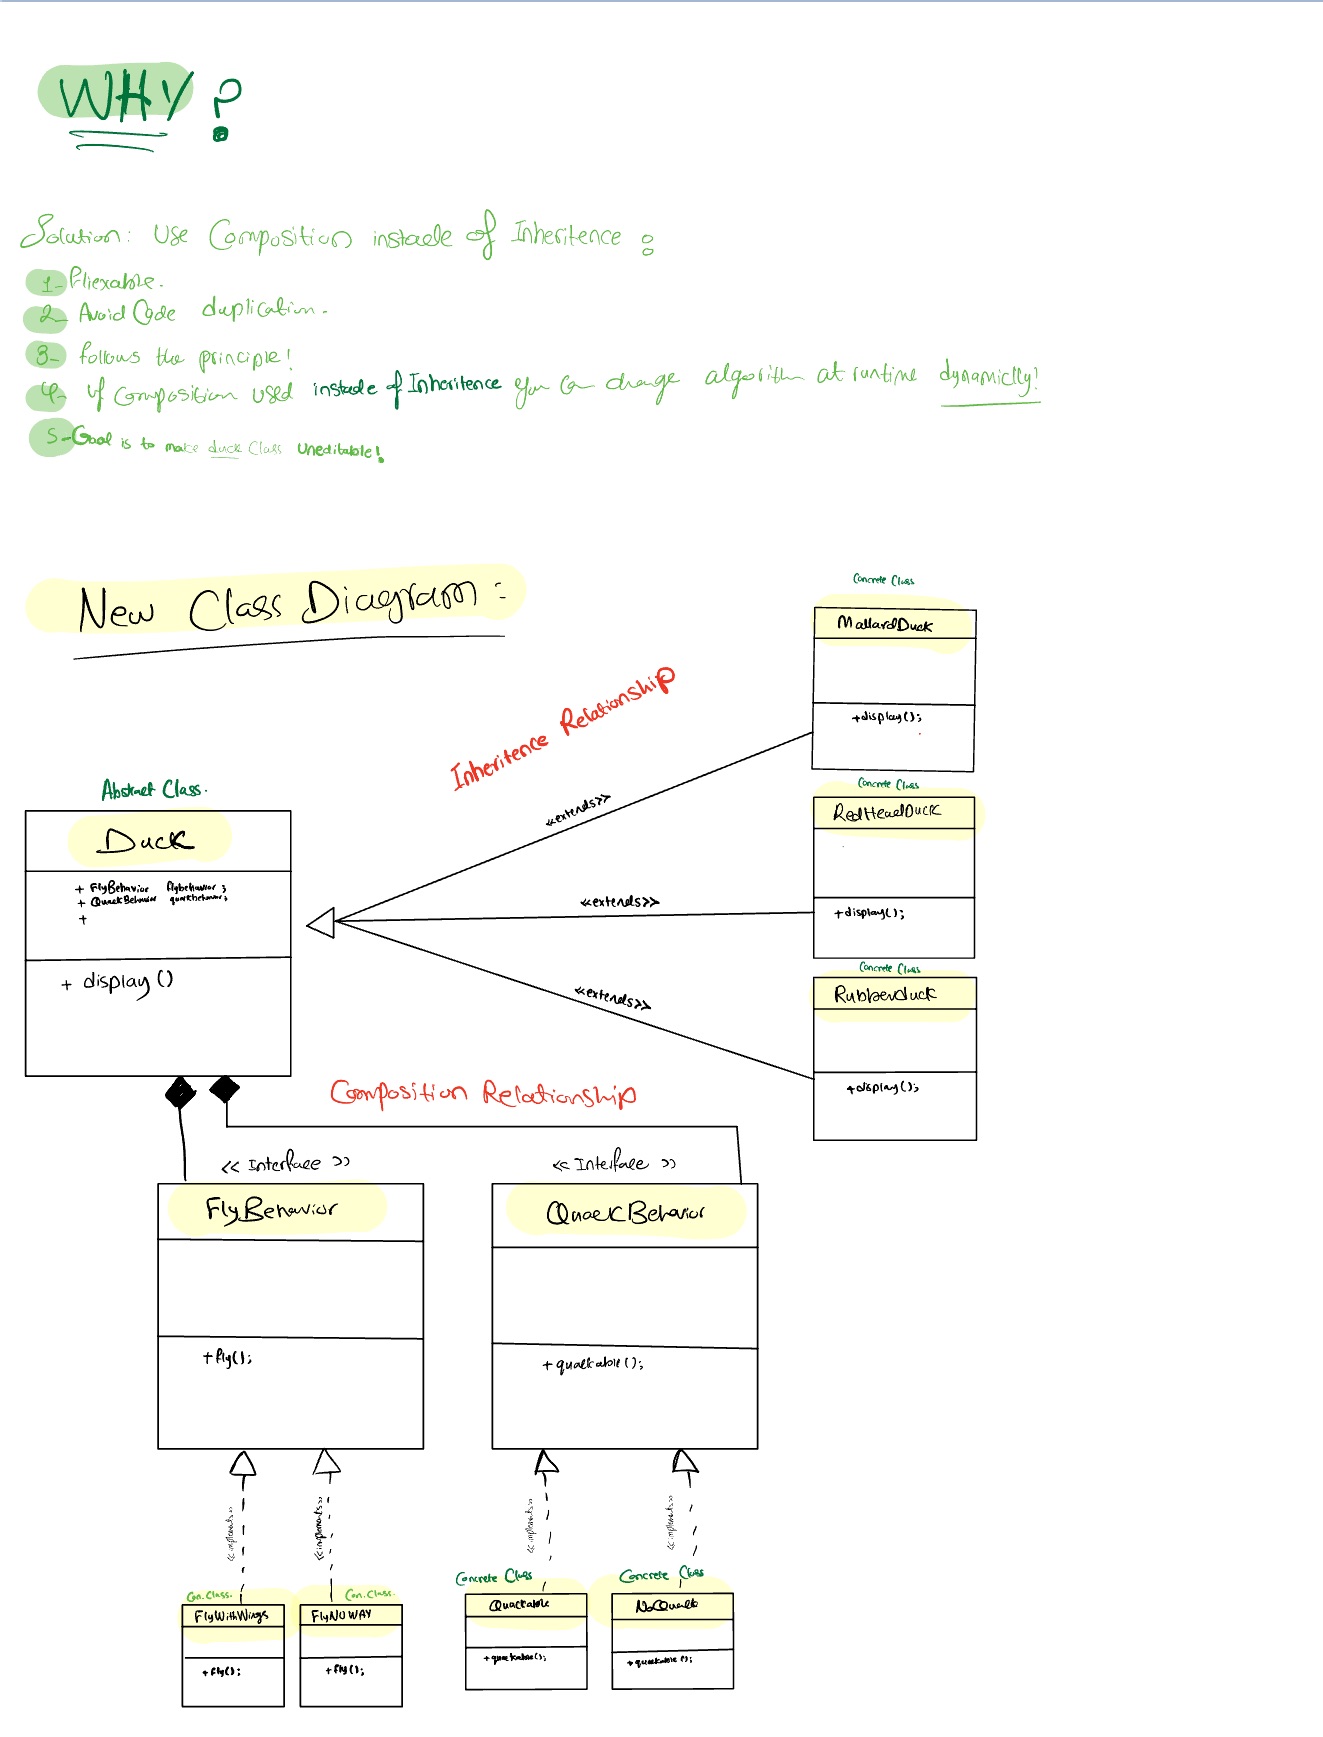 WHY?
Solution: Use Composition instade of Inheritence :
1- Fliexable.
2- Avoid Code duplication.
3- follows the principle!
4- if Composition used instade of Inheritence you can change algorithm at runtime dynamiclly!
5- Goal is to make duck Class Uneditable!
New Class Diagram:
Concrete Class
MallardDuck
+display();
Inheritence Relationship
<<extends>>
Abstract Class.
Duck
+ FlyBehavior flybehavior;
+ QuackBehavior quackbehavior;
+
+ display()
Concrete Class
RedHeadDuck
+display();
<<extends>>
Concrete Class
Rubberduck
+display();
<<extends>>
Composition Relationship
<< Interface >>
FlyBehavior
+fly();
<< Interface >>
QuackBehavior
+quackable();
<<implements>>
<<implements>>
<<implements>>
<<implements>>
Con.Class.
FlyWithWings
+fly();
Con.Class.
FlyNOWAY
+fly();
Concrete Class
Quackable
+quackable();
Concrete Class
NoQuack
+quackable();